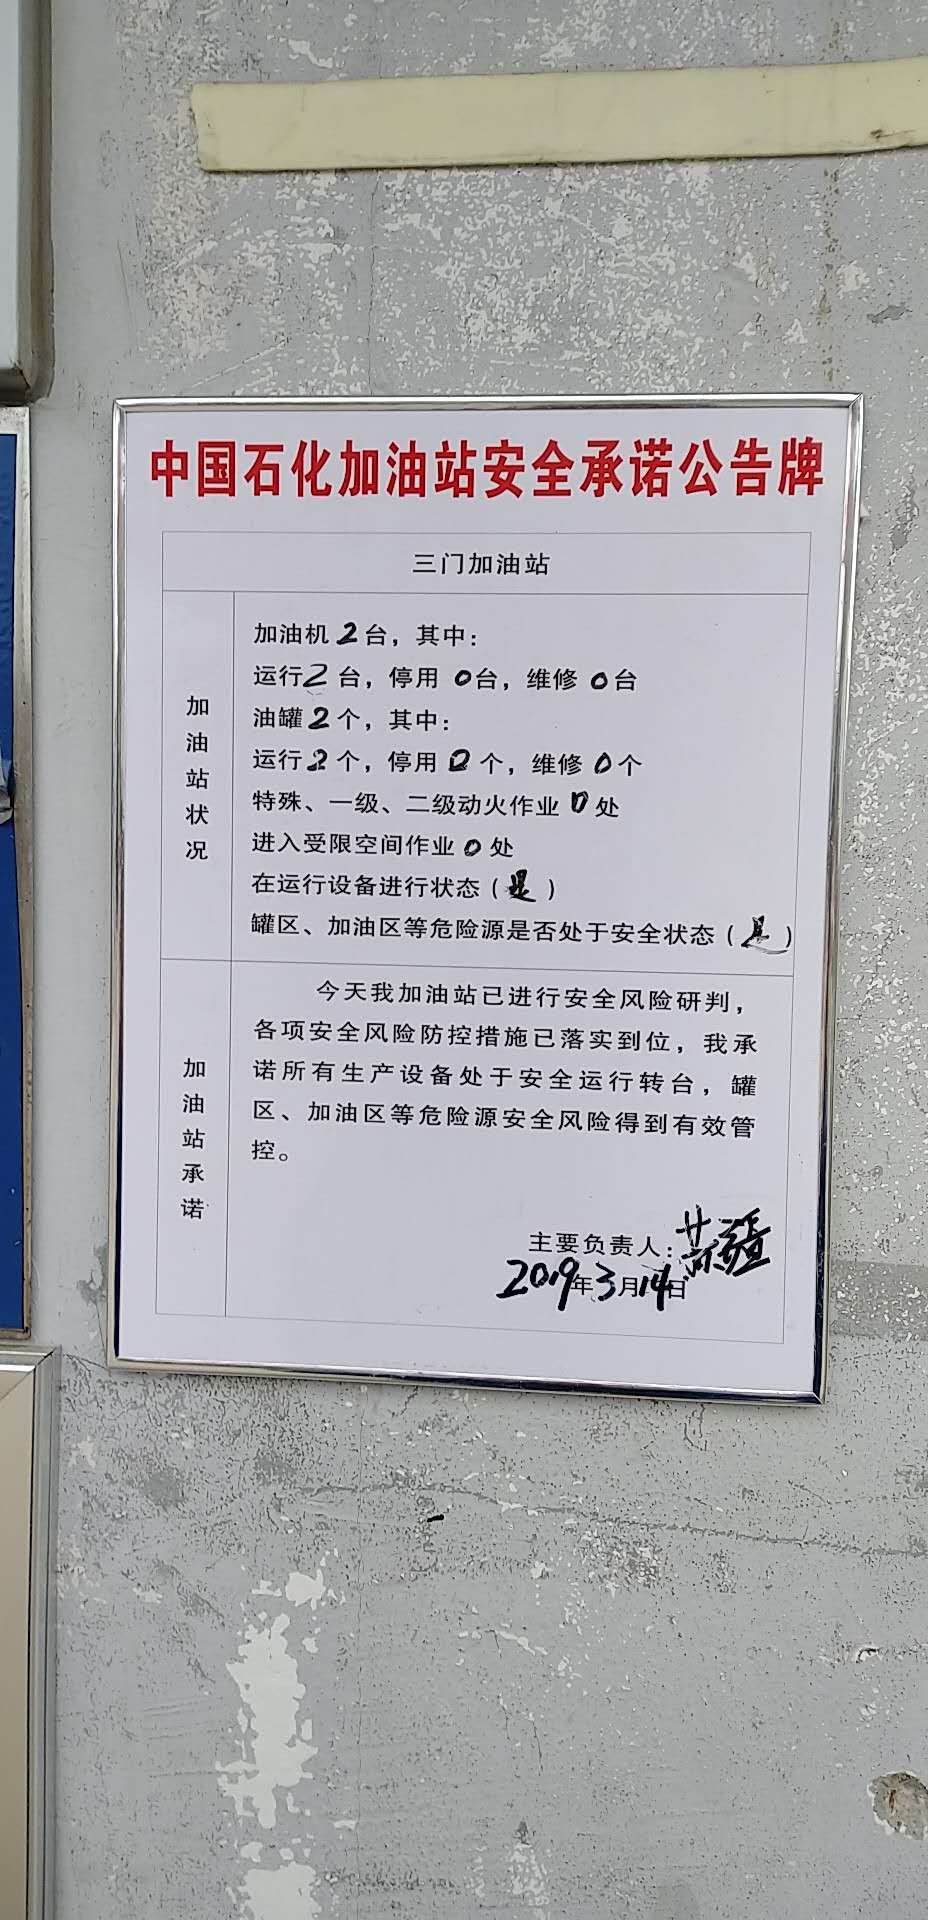 中国石化加油站安全承诺公告牌
三门加油站
加油站状况
加油机 2 台，其中：
运行 2 台，停用 0 台，维修 0 台
油罐 2 个，其中：
运行 2 个，停用 0 个，维修 0 个
特殊、一级、二级动火作业 0 处
进入受限空间作业 0 处
在运行设备进行状态（是）
罐区、加油区等危险源是否处于安全状态（是）
加油站承诺
今天我加油站已进行安全风险研判，
各项安全风险防控措施已落实到位，我承
诺所有生产设备处于安全运行转台，罐
区、加油区等危险源安全风险得到有效管
控。
主要负责人：
2019年3月14日